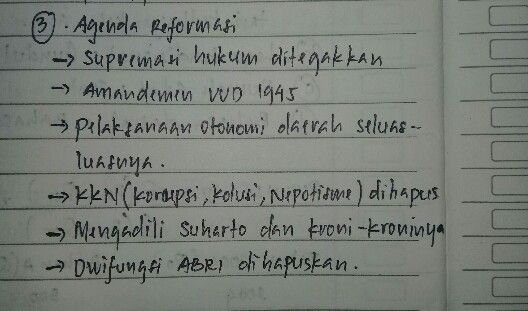 ③. Agenda Reformasi
→ Supremasi hukum ditegakkan
→ Amandemen UUD 1945
→ Pelaksanaan otonomi daerah seluas-
luasnya.
→ KKN (Korupsi, Kolusi, Nepotisme) dihapus
→ Mengadili Suharto dan kroni-kroninya
→ Dwifungsi ABRI dihapuskan.